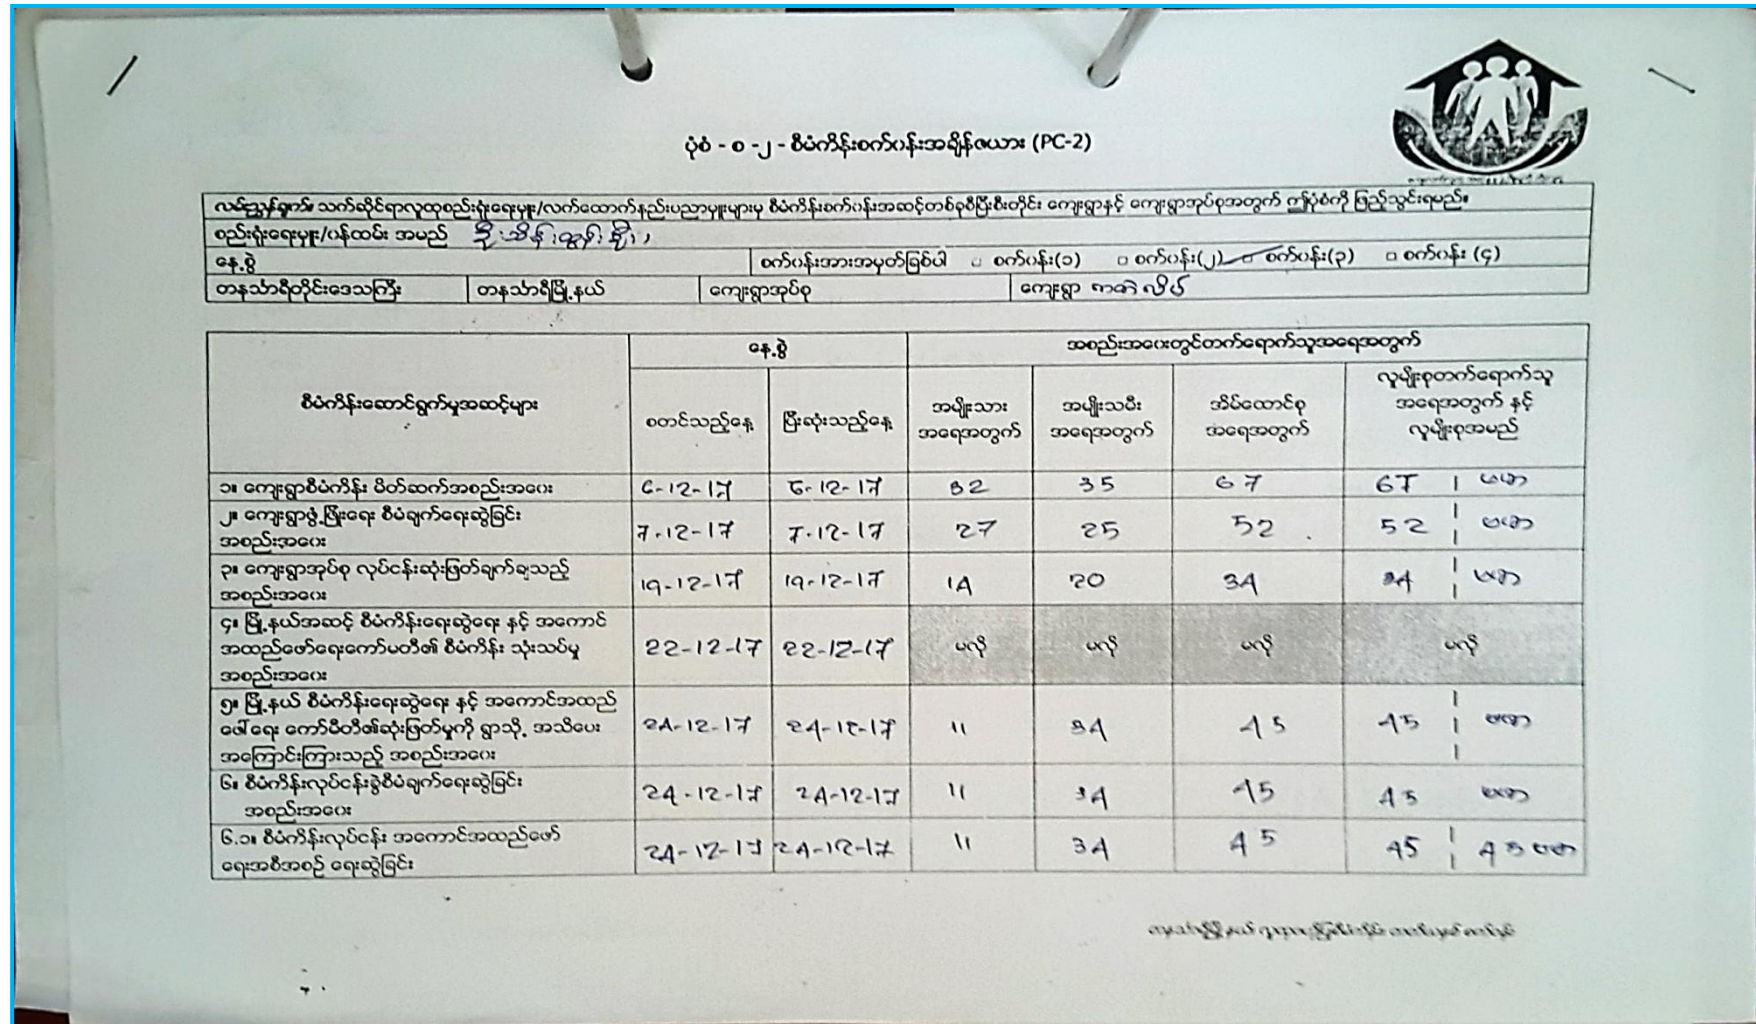 ပုံစံ - စ -၂ - စီမံကိန်းစက်ဝန်းအချိန်ဇယား (PC-2)
လမ်းညွှန်ချက်။ သက်ဆိုင်ရာလူထုစည်းရုံးရေးမှူး/လက်ထောက်နည်းပညာမှူးများမှ စီမံကိန်းစက်ဝန်းအဆင့်တစ်ခုစီပြီးစီးတိုင်း ကျေးရွာနှင့် ကျေးရွာအုပ်စုအတွက် ဤပုံစံကို ဖြည့်သွင်းရမည်။
စည်းရုံးရေးမှူး/ဝန်ထမ်း အမည် ဦးသိန်း
နေ့စွဲ စက်ဝန်းအားအမှတ်ခြစ်ပါ □ စက်ဝန်း(၁) □ စက်ဝန်း(၂) □ စက်ဝန်း(၃) □ စက်ဝန်း (၄)
တနင်္သာရီတိုင်းဒေသကြီး တနင်္သာရီမြို့နယ် ကျေးရွာအုပ်စု ကျေးရွာ
စီမံကိန်းဆောင်ရွက်မှုအဆင့်များ နေ့စွဲ အစည်းအဝေးတွင်တက်ရောက်သူအရေအတွက်
စတင်သည့်နေ့ ပြီးဆုံးသည့်နေ့ အမျိုးသား အရေအတွက် အမျိုးသမီး အရေအတွက် အိမ်ထောင်စု အရေအတွက် လူမျိုးစုတက်ရောက်သူ အရေအတွက် နှင့် လူမျိုးစုအမည်
၁။ ကျေးရွာစီမံကိန်း မိတ်ဆက်အစည်းအဝေး 6-12-17 6-12-17 32 35 67 67 ဗမာ
၂။ ကျေးရွာဖွံ့ဖြိုးရေး စီမံချက်ရေးဆွဲခြင်း
အစည်းအဝေး 7-12-17 7-12-17 27 25 52 52 ဗမာ
၃။ ကျေးရွာအုပ်စု လုပ်ငန်းဆုံးဖြတ်ချက်ချသည့်
အစည်းအဝေး 19-12-17 19-12-17 14 20 34 34 ဗမာ
၄။ မြို့နယ်အဆင့် စီမံကိန်းရေးဆွဲရေး နှင့် အကောင်
အထည်ဖော်ရေးကော်မတီ၏ စီမံကိန်း သုံးသပ်မှု
အစည်းအဝေး 22-12-17 22-12-17 မလို မလို မလို မလို
၅။ မြို့နယ် စီမံကိန်းရေးဆွဲရေး နှင့် အကောင်အထည်
ဖေါ်ရေး ကော်မီတီ၏ဆုံးဖြတ်မှုကို ရွာသို့ အသိပေး
အကြောင်းကြားသည့် အစည်းအဝေး 24-12-17 24-12-17 11 34 45 45 ဗမာ
၆။ စီမံကိန်းလုပ်ငန်းခွဲစီမံချက်ရေးဆွဲခြင်း
အစည်းအဝေး 24-12-17 24-12-17 11 34 45 45 ဗမာ
၆.၁။ စီမံကိန်းလုပ်ငန်း အကောင်အထည်ဖော်
ရေးအစီအစဉ် ရေးဆွဲခြင်း 24-12-17 24-12-17 11 34 45 45 45 ဗမာ